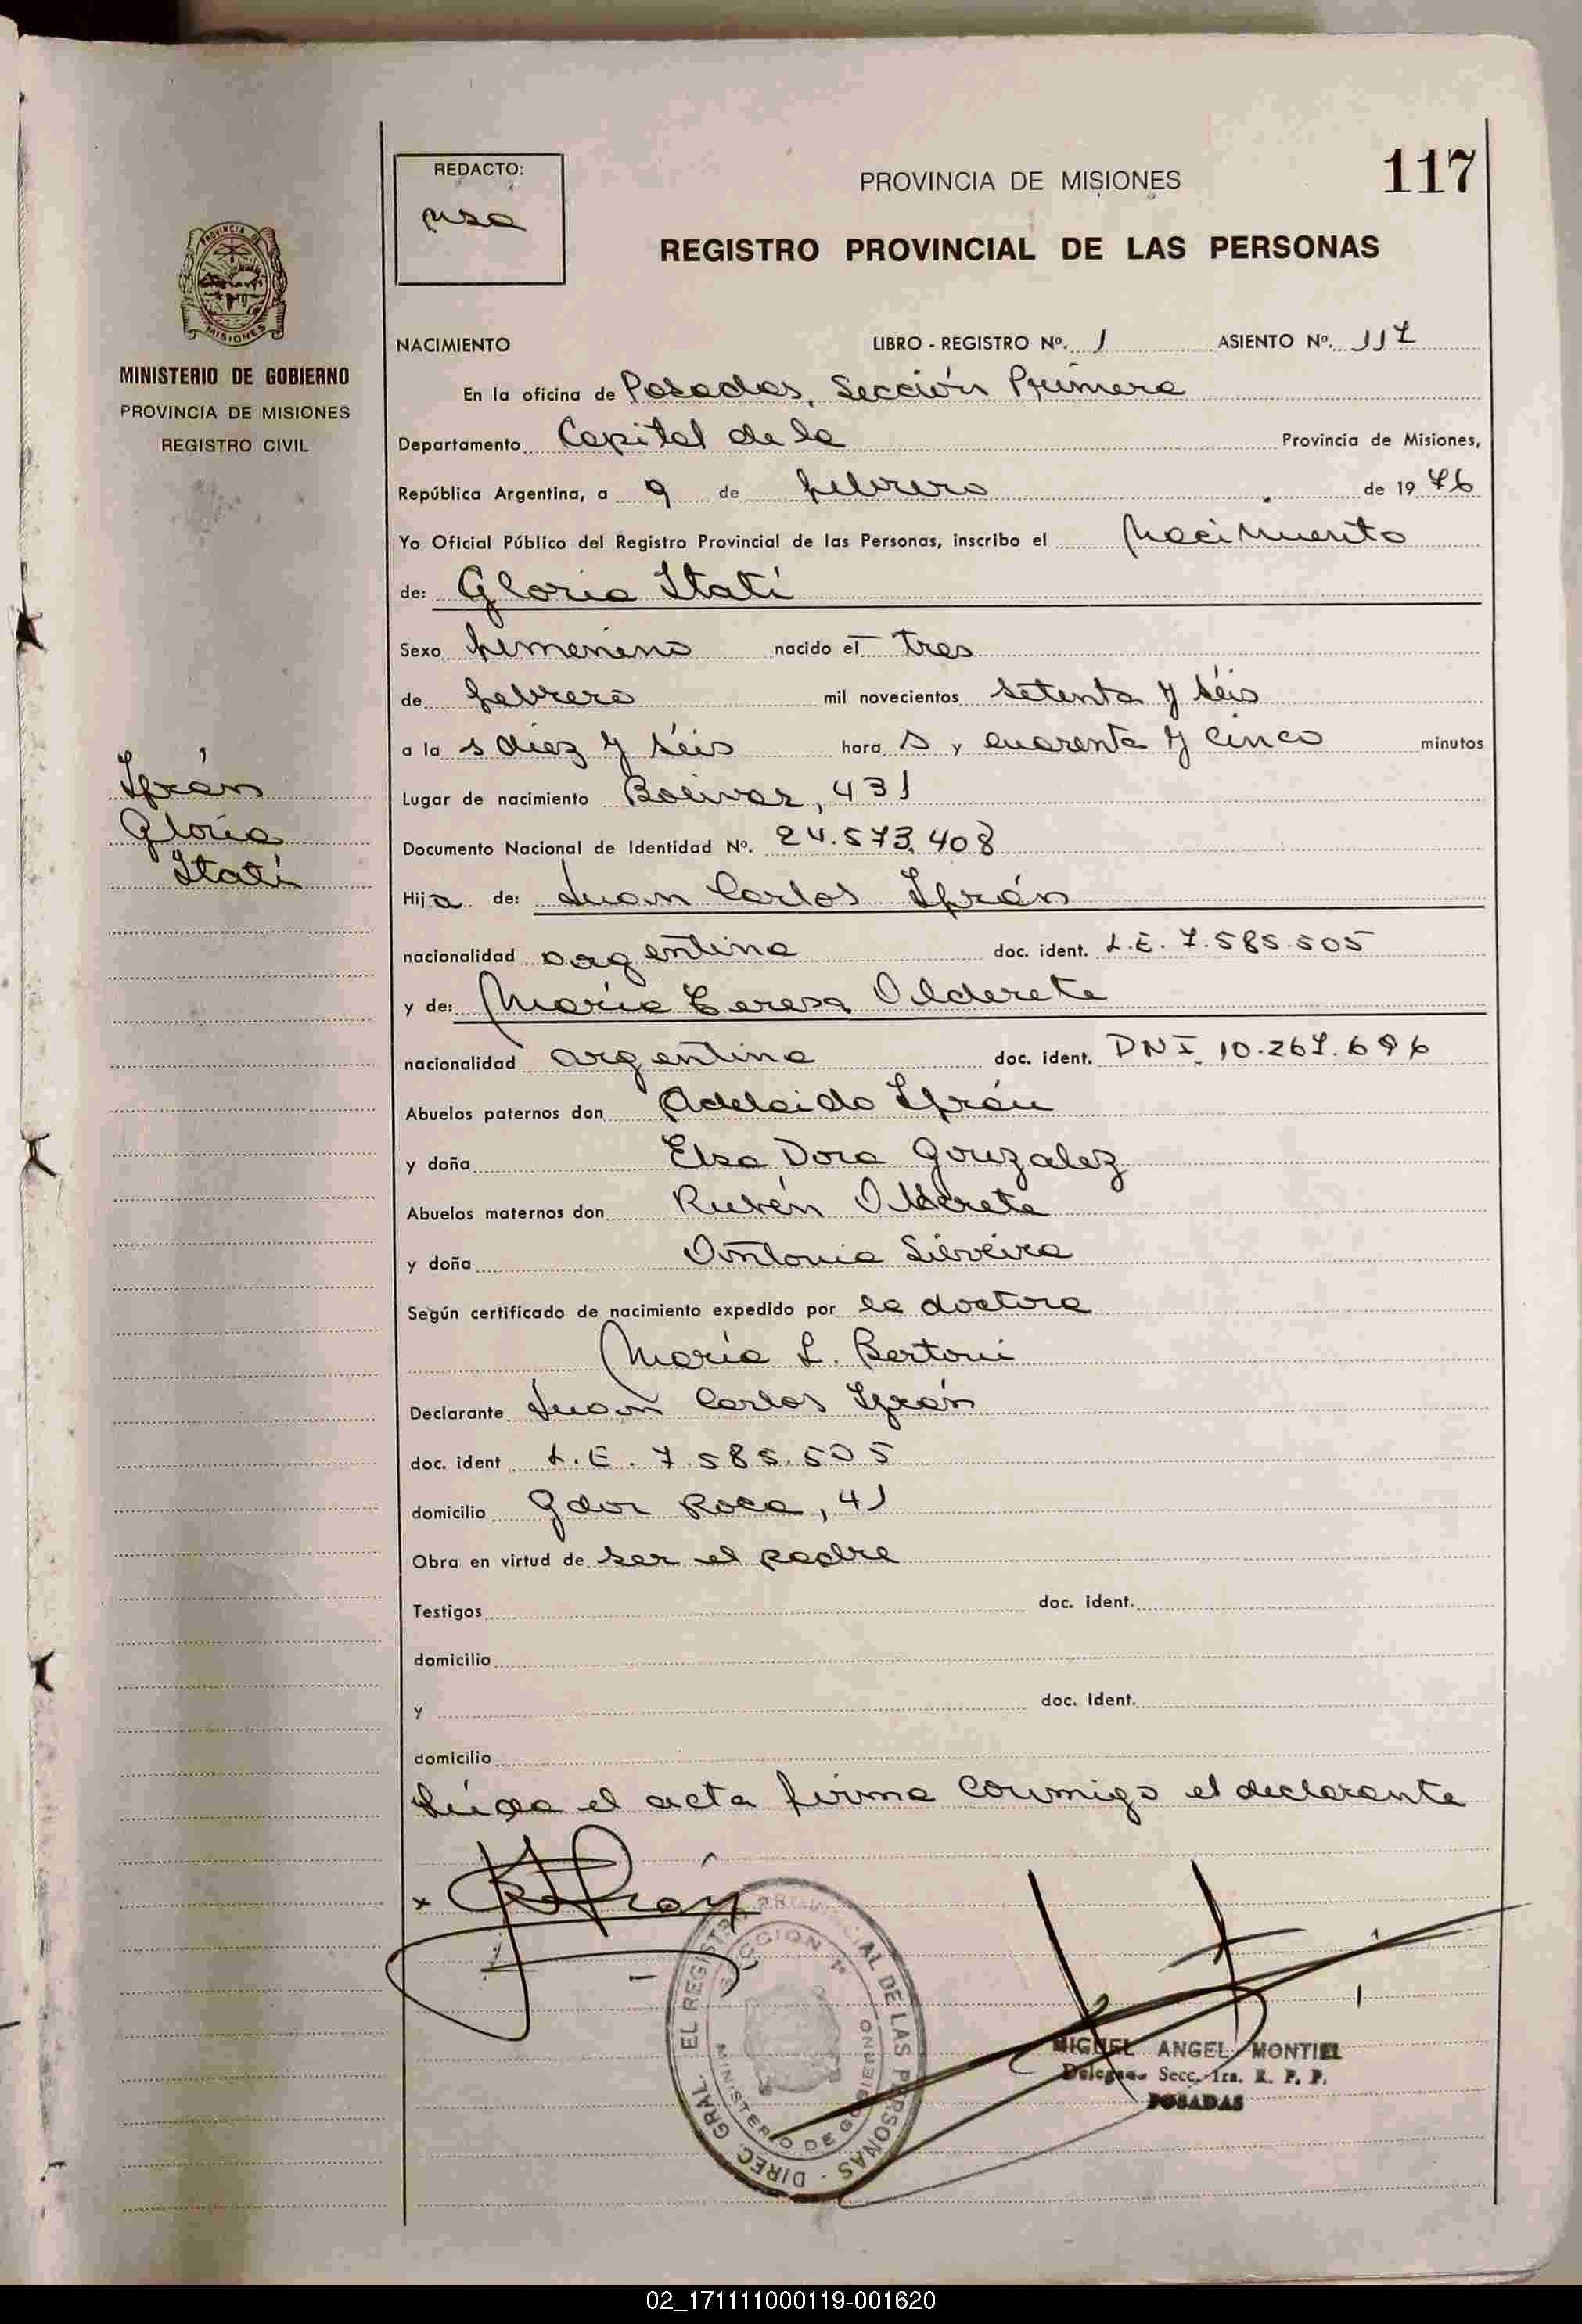 REDACTO:
PROVINCIA DE MISIONES
117
REGISTRO PROVINCIAL DE LAS PERSONAS
PROVINCIA DE
MISIONES
MINISTERIO DE GOBIERNO
PROVINCIA DE MISIONES
REGISTRO CIVIL
NACIMIENTO LIBRO - REGISTRO Nº. 1 ASIENTO Nº. 117
En la oficina de Posadas, Sección Primera
Departamento Capital de la Provincia de Misiones,
República Argentina, a 9 de febrero de 1976
Yo Oficial Público del Registro Provincial de las Personas, inscribo el Nacimiento
de: Gloria Itatí
Sexo femenino nacido el tres
de febrero mil novecientos setenta y séis
a la s diez y séis hora s y cuarenta y cinco minutos
Ifrán
Gloria
Itatí
Lugar de nacimiento Bolivar, 431
Documento Nacional de Identidad Nº. 24.573.408
Hija de: Juan Carlos Ifrán
nacionalidad argentina doc. ident. L.E. 7.585.505
y de: María Teresa Alderete
nacionalidad argentina doc. ident. DNI. 10.267.696
Abuelos paternos don Adelaido Ifrán
y doña Elsa Dora Gonzalez
Abuelos maternos don Rubén Alderete
y doña Antonia Silveira
Según certificado de nacimiento expedido por la doctora
María L. Bertoni
Declarante Juan Carlos Ifrán
doc. ident L.E. 7.585.505
domicilio Gdor Roca, 41
Obra en virtud de ser el padre
Testigos doc. ident.
domicilio
y doc. ident.
domicilio
Leída el acta firma conmigo el declarante
DIREC. GRAL. EL REGISTRO PROVINCIAL DE LAS PERSONAS
SECCION 1ª
MINISTERIO DE GOBIERNO
MIGUEL ANGEL MONTIEL
Delegado Secc. 1ra. R. P. P.
POSADAS
02_171111000119-001620